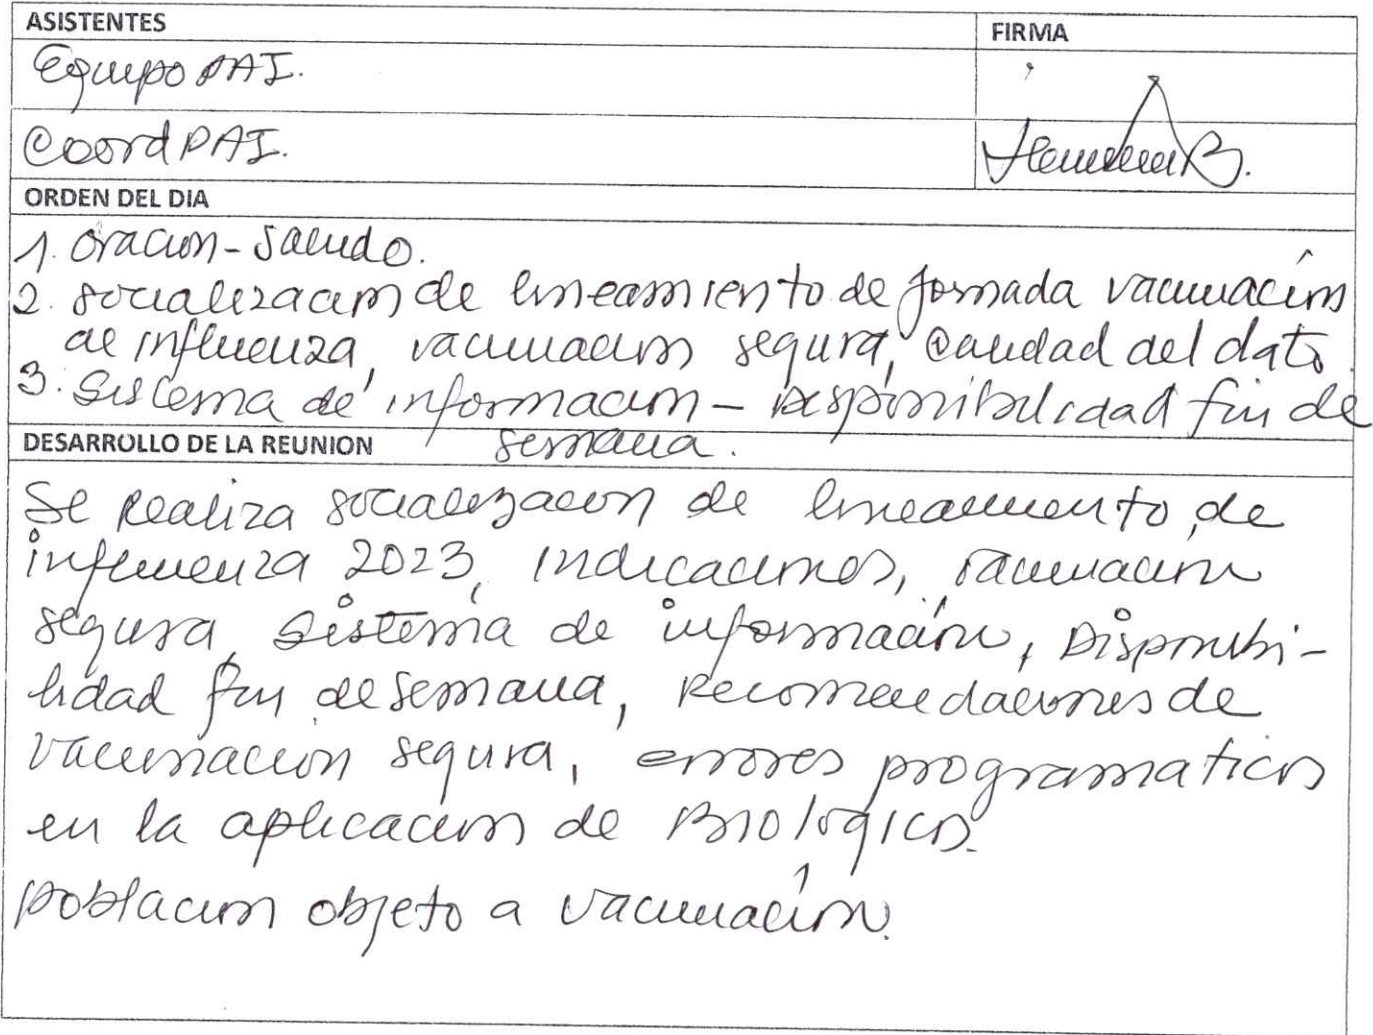 ASISTENTES FIRMA
Equipo PAI.
Coord PAI.
ORDEN DEL DIA
1. Oración - Saludo.
2. Socialización de lineamiento de jornada vacunación
de influenza, vacunación segura, Calidad del dato.
3. Sistema de información - Disponibilidad fin de
semana.
DESARROLLO DE LA REUNION
Se Realiza socialización de lineamiento de
influenza 2023, indicaciones, vacunación
segura, Sistema de información, Disponibi-
lidad fin de semana, Recomendaciones de
vacunación segura, errores programaticos
en la aplicación de Biológicos.
población objeto a vacunación.